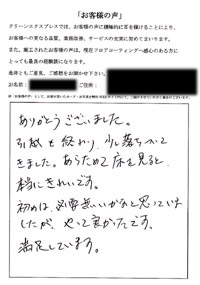 「お客様の声」
クリーンエクスプレスでは、お客様の声に積極的に耳を傾けることにより、
お客様への更なる品質、業務改善、サービスの充実に努めてまいります。
また、施工されたお客様の声は、現在フロアコーティングへ感心のある方に
とっても最良の経験談になります。
是非ともご意見、ご感想をお聞かせ下さい。
お名前
ご住所:
ありがとうございました。
引越も終わり、少し落ちついて
きました。あらためて床を見ると、
本当にきれいです。
初めは、必要無いかなと思っていま
したが、やって良かったです。
満足しています。